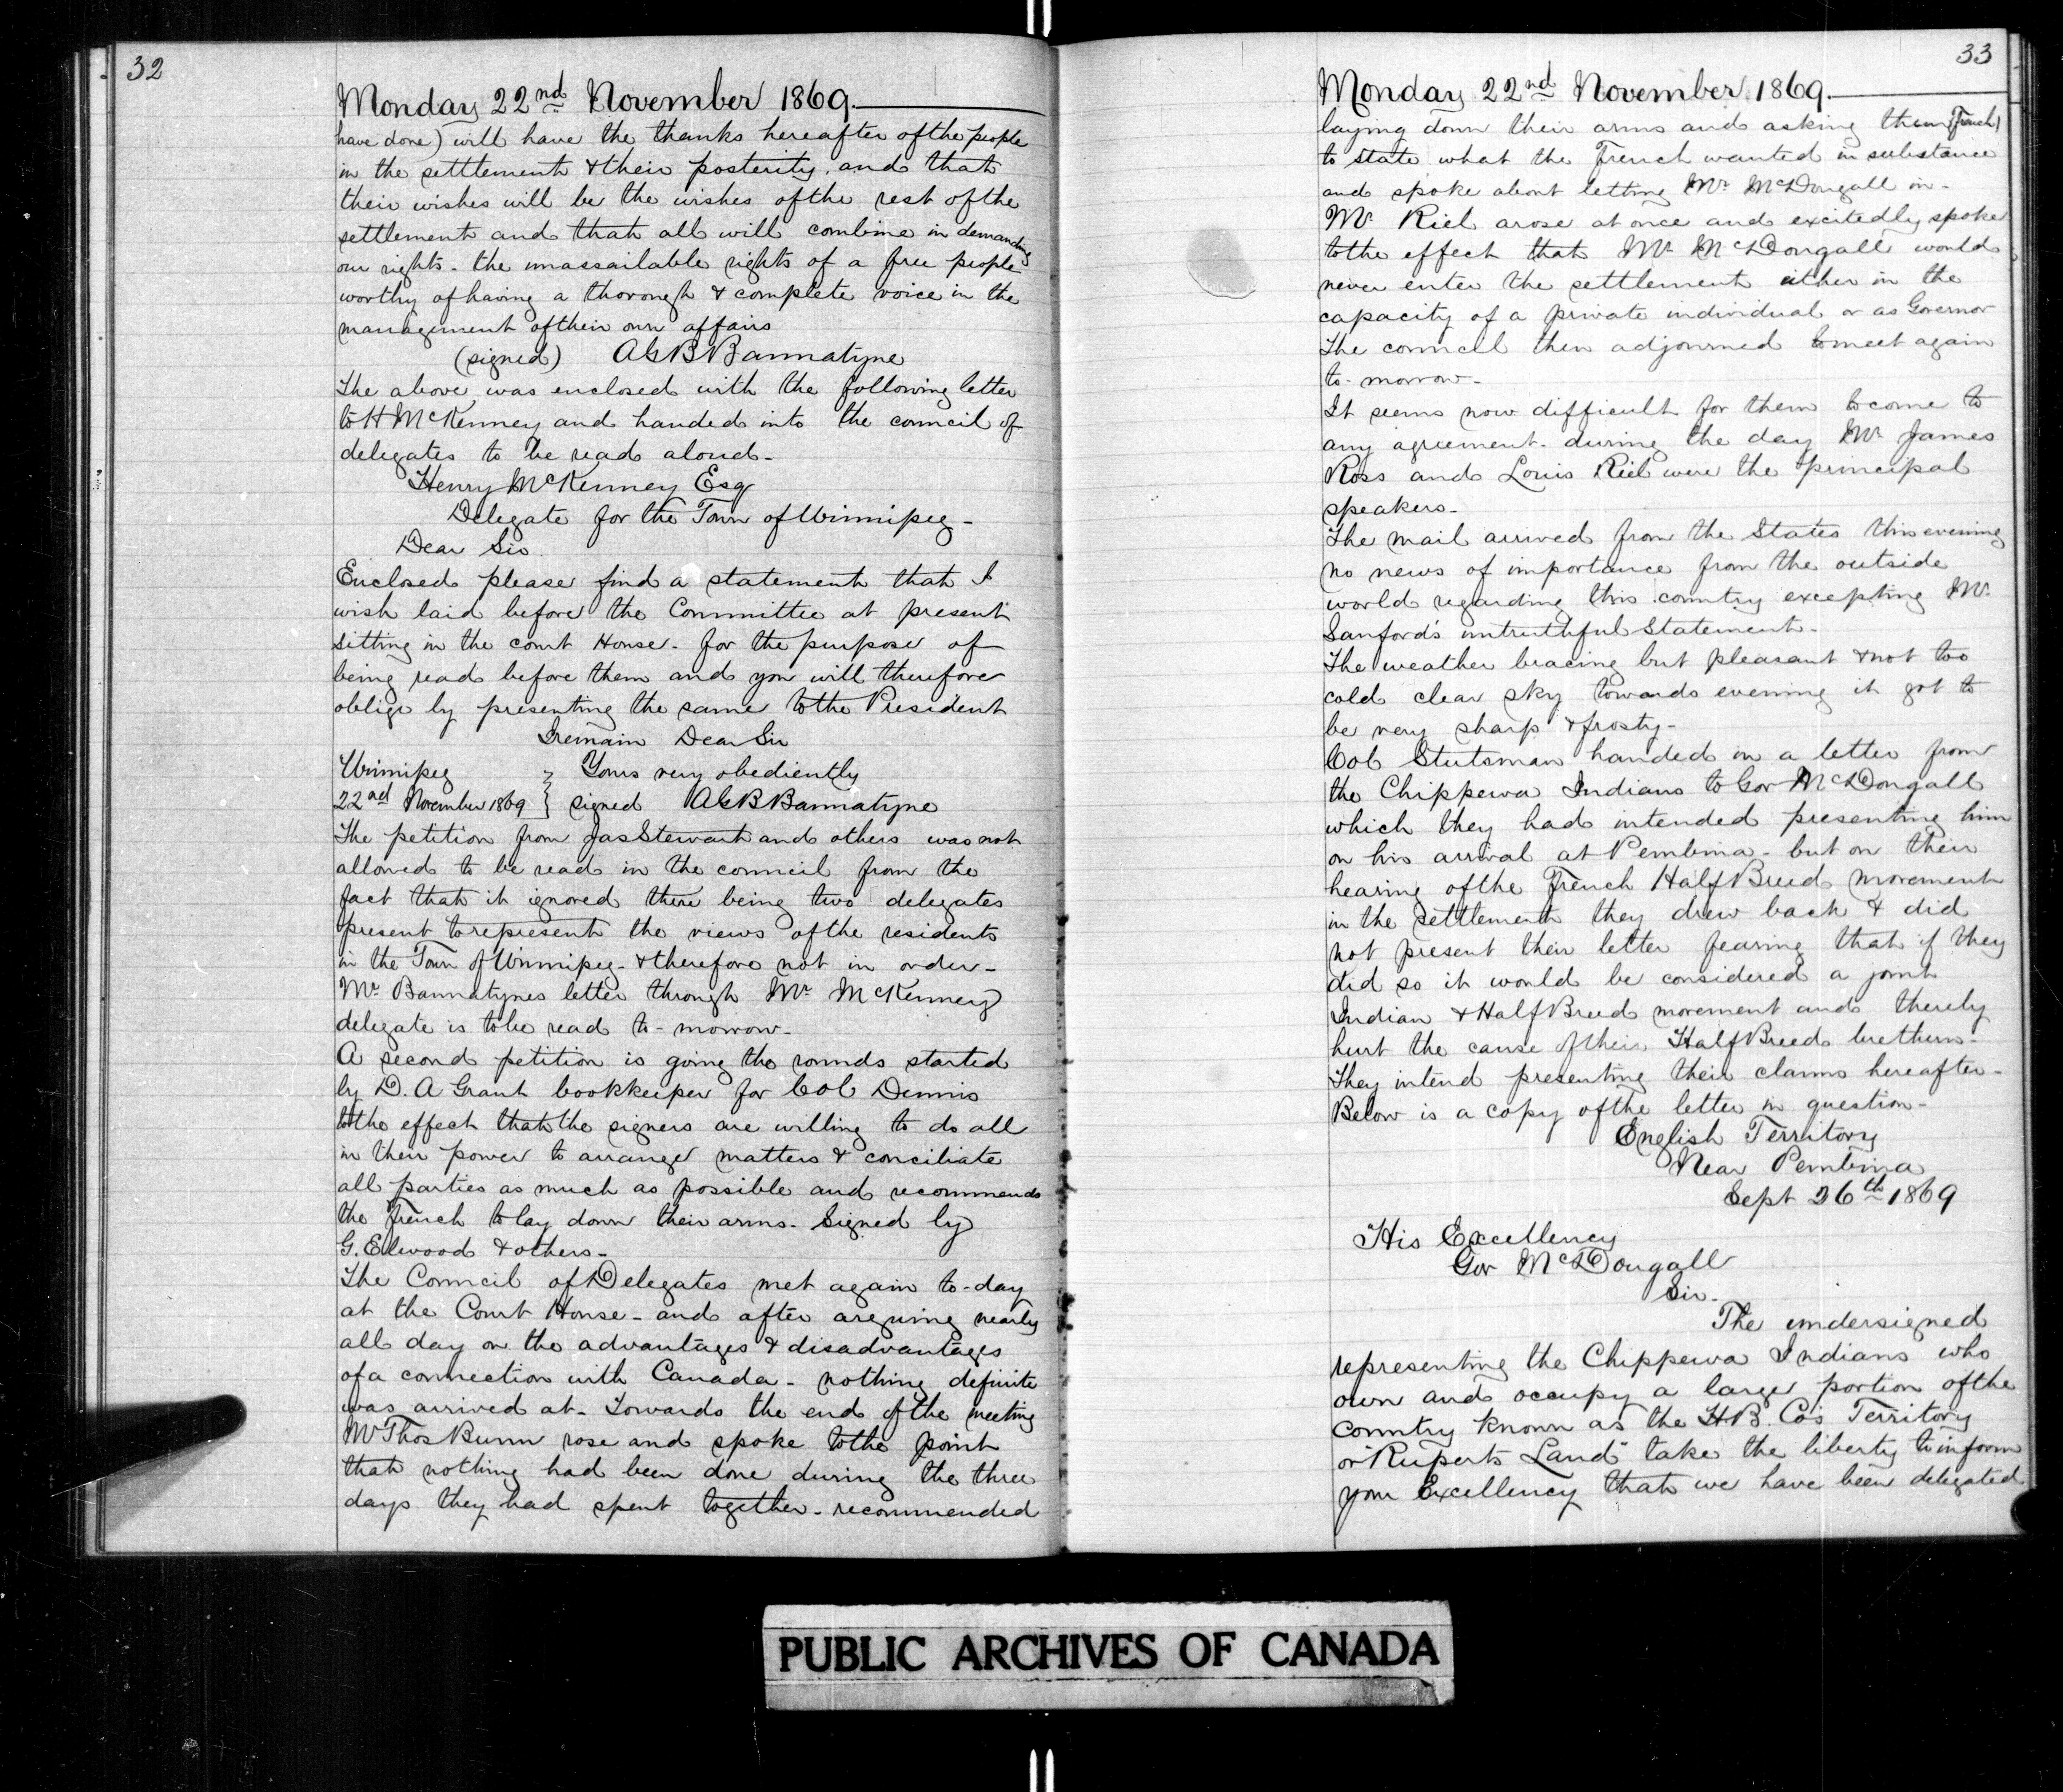 32
Monday 22nd November 1869.
have done) will have the thanks hereafter of the people
in the settlement & their posterity. and that
their wishes will be the wishes of the rest of the
settlement and that all will combine in demanding
our rights - the unassailable rights of a free people
worthy of having a thorough & complete voice in the
management of their own affairs
(signed) AGB Bannatyne
The above was enclosed with the following letter
to H McKenney and handed into the council of
delegates to be read aloud -
Henry McKenney Esq
Delegate for the Town of Winnipeg -
Dear Sir
Enclosed please find a statement that I
wish laid before the Committee at present
sitting in the court House - for the purpose of
being read before them and you will therefore
oblige by presenting the same to the President
I remain Dear Sir
Winnipeg } Yours very obediently
22nd November 1869 } signed AGB Bannatyne
The petition from Jas Stewart and others was not
allowed to be read in the council from the
fact that it ignored there being two delegates
present to represent the views of the residents
in the Town of Winnipeg - & therefore not in order -
Mr Bannatynes letter through Mr McKenney
delegate is to be read to-morrow -
A second petition is going the rounds started
by D. A Grant bookkeeper for Col Dennis
to the effect that the signers are willing to do all
in their power to arrange matters & conciliate
all parties as much as possible and recommends
the French to lay down their arms - Signed by
G. Elwood & others -
The Council of Delegates met again to-day
at the Court House - and after arguing nearly
all day on the advantages & disadvantages
of a connection with Canada - nothing definite
was arrived at - Towards the end of the meeting
Mr Thos Bunn rose and spoke to the point
that nothing had been done during the three
days they had spent together - recommended
33
Monday 22nd November 1869.
laying down their arms and asking them (French)
to state what the French wanted in substance
and spoke about letting Mr McDougall in -
Mr Riel arose at once and excitedly spoke
to the effect that Mr McDougall would
never enter the settlement either in the
capacity of a private individual or as Governor
The council then adjourned to meet again
to-morrow -
It seems now difficult for them to come to
any agreement - during the day Mr James
Ross and Louis Riel were the principal
speakers -
The mail arrived from the States this evening
no news of importance from the outside
world regarding this country excepting Mr
Sanford's untruthful statement -
The weather bracing but pleasant & not too
cold clear sky towards evening it got to
be very sharp & frosty -
Col Stutsman handed in a letter from
the Chippewa Indians to Gov McDougall
which they had intended presenting him
on his arrival at Pembina - but on their
hearing of the French Half Breed movement
in the settlement they drew back & did
not present their letter fearing that if they
did so it would be considered a joint
Indian & Half Breed movement and thereby
hurt the cause of their Half Breed brethern -
They intend presenting their claims hereafter -
Below is a copy of the letter in question -
English Territory
Near Pembina
Sept 26th 1869
His Excellency
Gov McDougall
Sir -
The undersigned
representing the Chippewa Indians who
own and occupy a large portion of the
country known as the H.B. Co's Territory
or "Ruperts Land" take the liberty to inform
your Excellency that we have been delegated
PUBLIC ARCHIVES OF CANADA